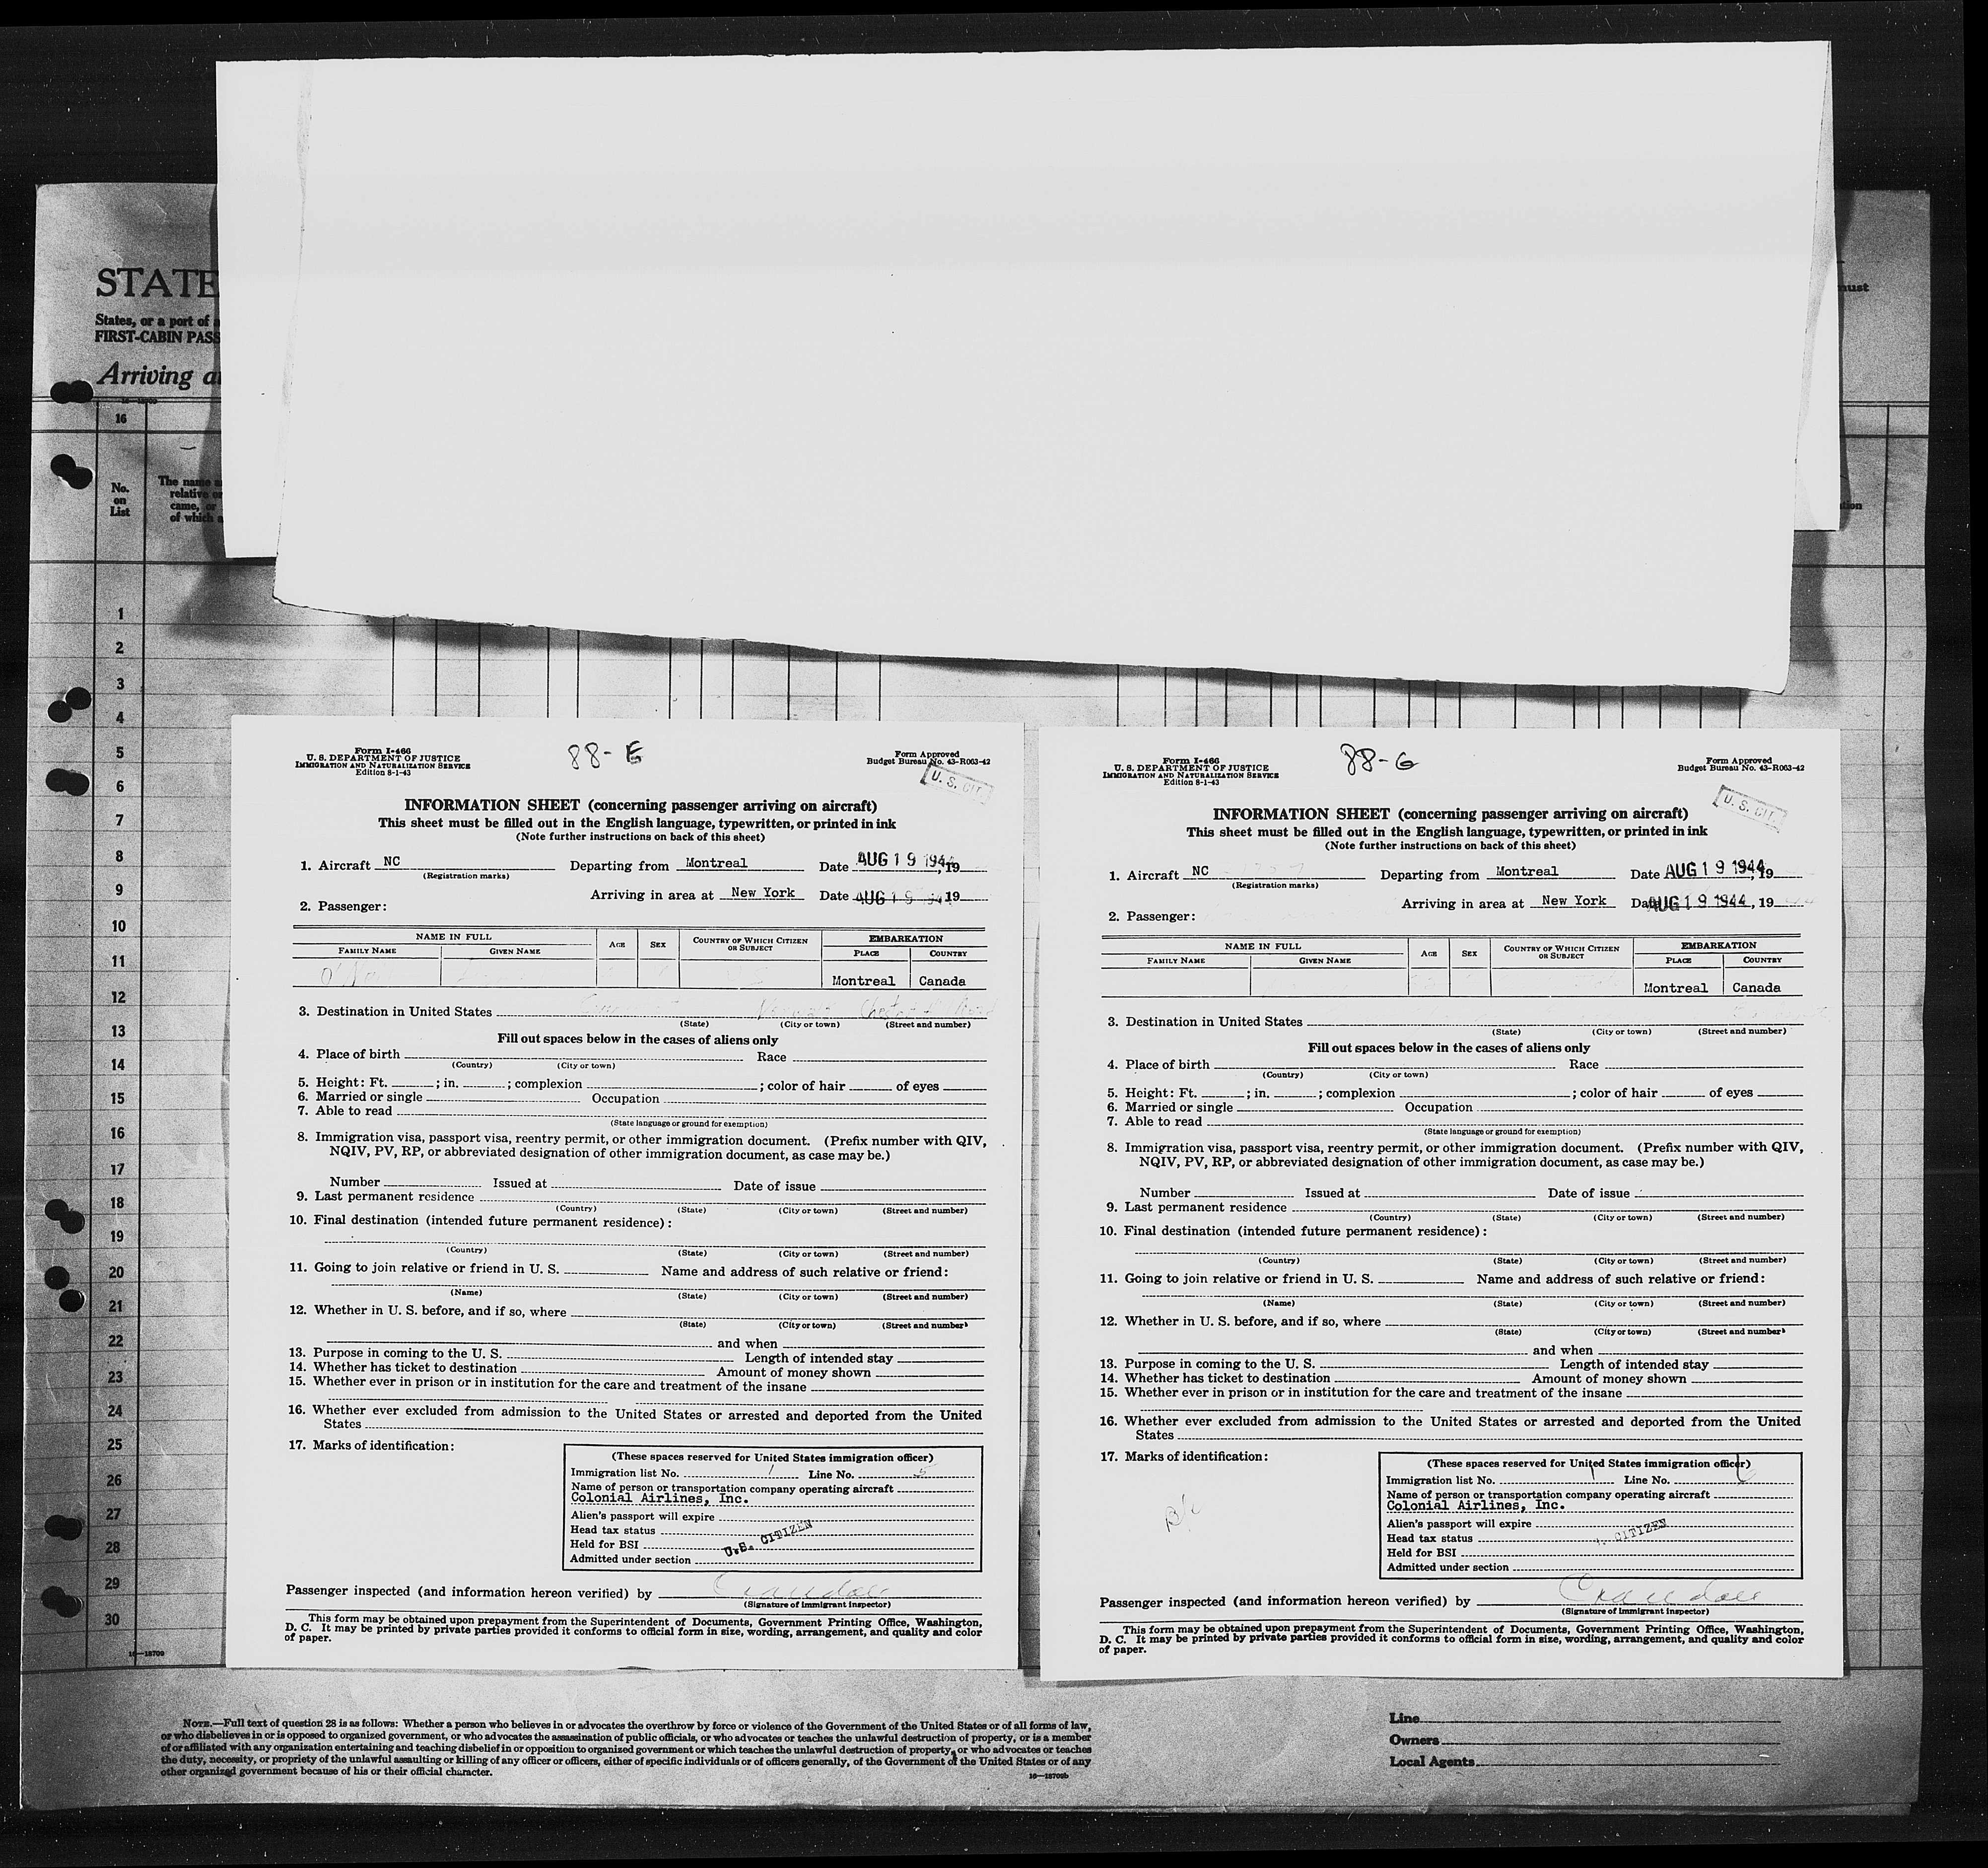 STATE
States, or a port of
FIRST-CABIN PASS
Arriving
must
16—18709
16
No.
on
List
The name
relative or
came, or
of which
1
2
3
4
5
6
7
8
9
10
11
12
13
14
15
16
17
18
19
20
21
22
23
24
25
26
27
28
29
30
16—18709
Form I-466
U. S. DEPARTMENT OF JUSTICE
IMMIGRATION AND NATURALIZATION SERVICE
Edition 8-1-43
88-E
Form Approved
Budget Bureau No. 43-R063-42
U. S. CIT.
INFORMATION SHEET (concerning passenger arriving on aircraft)
This sheet must be filled out in the English language, typewritten, or printed in ink
(Note further instructions on back of this sheet)
1. Aircraft NC Departing from Montreal Date AUG 19 1944, 19
(Registration marks)
Arriving in area at New York Date AUG 19 1944 19
2. Passenger:
NAME IN FULL AGE SEX COUNTRY OF WHICH CITIZEN OR SUBJECT EMBARKATION
FAMILY NAME GIVEN NAME PLACE COUNTRY
Montreal Canada
3. Destination in United States
(State) (City or town) (Street and number)
Fill out spaces below in the cases of aliens only
4. Place of birth Race
(Country) (City or town)
5. Height: Ft. ; in. ; complexion ; color of hair of eyes
6. Married or single Occupation
7. Able to read
(State language or ground for exemption)
8. Immigration visa, passport visa, reentry permit, or other immigration document. (Prefix number with QIV,
NQIV, PV, RP, or abbreviated designation of other immigration document, as case may be.)
Number Issued at Date of issue
9. Last permanent residence
(Country) (State) (City or town) (Street and number)
10. Final destination (intended future permanent residence):
(Country) (State) (City or town) (Street and number)
11. Going to join relative or friend in U. S. Name and address of such relative or friend:
(Name) (State) (City or town) (Street and number)
12. Whether in U. S. before, and if so, where
(State) (City or town) (Street and number)
and when
13. Purpose in coming to the U. S. Length of intended stay
14. Whether has ticket to destination Amount of money shown
15. Whether ever in prison or in institution for the care and treatment of the insane
16. Whether ever excluded from admission to the United States or arrested and deported from the United
States
17. Marks of identification:
(These spaces reserved for United States immigration officer)
Immigration list No. 1 Line No. 5
Name of person or transportation company operating aircraft
Colonial Airlines, Inc.
Alien's passport will expire
Head tax status
Held for BSI U.S. CITIZEN
Admitted under section
Passenger inspected (and information hereon verified) by Crandall
(Signature of immigrant inspector)
This form may be obtained upon prepayment from the Superintendent of Documents, Government Printing Office, Washington,
D. C. It may be printed by private parties provided it conforms to official form in size, wording, arrangement, and quality and color
of paper.
Form I-466
U. S. DEPARTMENT OF JUSTICE
IMMIGRATION AND NATURALIZATION SERVICE
Edition 8-1-43
88-G
Form Approved
Budget Bureau No. 43-R063-42
U. S. CIT.
INFORMATION SHEET (concerning passenger arriving on aircraft)
This sheet must be filled out in the English language, typewritten, or printed in ink
(Note further instructions on back of this sheet)
1. Aircraft NC Departing from Montreal Date AUG 19 1944, 19
(Registration marks)
Arriving in area at New York Date AUG 19 1944, 19
2. Passenger:
NAME IN FULL AGE SEX COUNTRY OF WHICH CITIZEN OR SUBJECT EMBARKATION
FAMILY NAME GIVEN NAME PLACE COUNTRY
Montreal Canada
3. Destination in United States
(State) (City or town) (Street and number)
Fill out spaces below in the cases of aliens only
4. Place of birth Race
(Country) (City or town)
5. Height: Ft. ; in. ; complexion ; color of hair of eyes
6. Married or single Occupation
7. Able to read
(State language or ground for exemption)
8. Immigration visa, passport visa, reentry permit, or other immigration document. (Prefix number with QIV,
NQIV, PV, RP, or abbreviated designation of other immigration document, as case may be.)
Number Issued at Date of issue
9. Last permanent residence
(Country) (State) (City or town) (Street and number)
10. Final destination (intended future permanent residence):
(Country) (State) (City or town) (Street and number)
11. Going to join relative or friend in U. S. Name and address of such relative or friend:
(Name) (State) (City or town) (Street and number)
12. Whether in U. S. before, and if so, where
(State) (City or town) (Street and number)
and when
13. Purpose in coming to the U. S. Length of intended stay
14. Whether has ticket to destination Amount of money shown
15. Whether ever in prison or in institution for the care and treatment of the insane
16. Whether ever excluded from admission to the United States or arrested and deported from the United
States
17. Marks of identification:
(These spaces reserved for United States immigration officer)
Immigration list No. 1 Line No.
Name of person or transportation company operating aircraft
Colonial Airlines, Inc.
Alien's passport will expire
Head tax status CITIZEN
Held for BSI
Admitted under section
Passenger inspected (and information hereon verified) by Crandall
(Signature of immigrant inspector)
This form may be obtained upon prepayment from the Superintendent of Documents, Government Printing Office, Washington,
D. C. It may be printed by private parties provided it conforms to official form in size, wording, arrangement, and quality and color
of paper.
NOTE.—Full text of question 28 is as follows: Whether a person who believes in or advocates the overthrow by force or violence of the Government of the United States or of all forms of law,
or who disbelieves in or is opposed to organized government, or who advocates the assassination of public officials, or who advocates or teaches the unlawful destruction of property, or is a member
of or affiliated with any organization entertaining and teaching disbelief in or opposition to organized government or which teaches the unlawful destruction of property, or who advocates or teaches
the duty, necessity, or propriety of the unlawful assaulting or killing of any officer or officers, either of specific individuals or of officers generally, of the Government of the United States or of any
other organized government because of his or their official character.
16—18709b
Line
Owners
Local Agents